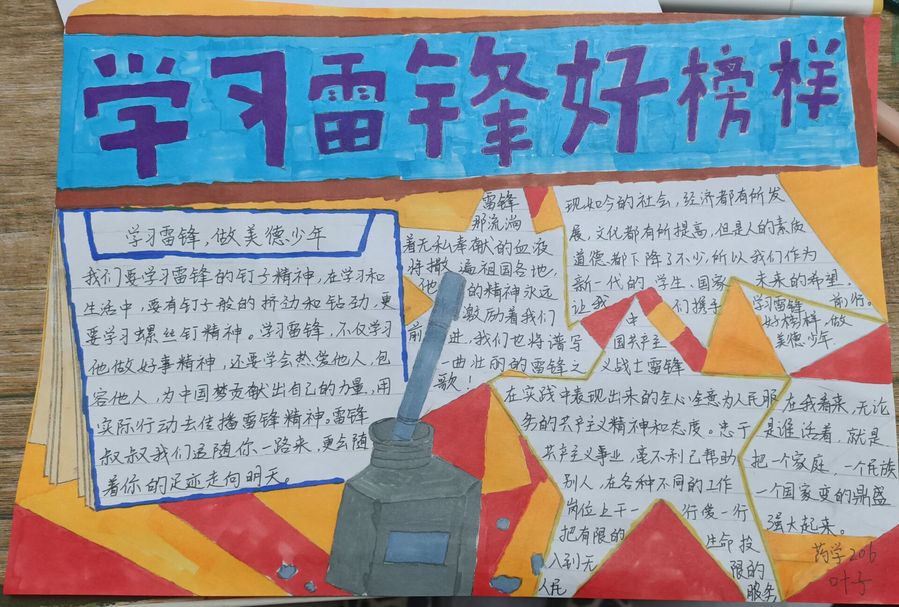 学习雷锋好榜样
学习雷锋，做美德少年
我们要学习雷锋的钉子精神，在学习和
生活中，要有钉子般的挤动和钻动，更
要学习螺丝钉精神。学习雷锋，不仅学习
他做好事精神，还要学会热爱他人，包
容他人，为中国梦贡献出自己的力量，用
实际行动去传播雷锋精神。雷锋
叔叔我们追随你一路来，更会随
着你的足迹走向明天。
雷锋
那流淌
着无私奉献的血液
将撒遍祖国各地，
他的精神永远
激励着我们
前进，我们也将谱写
一曲壮丽的雷锋之
歌！
现如今的社会，经济都有所发
展，文化都有所提高，但是人的素质
道德都下降了不少，所以我们作为
新一代的学生，国家未来的希望，
让我们携手前行。
学习雷锋
好榜样，做
美德少年
中
国共产主
义战士雷锋
在实践中表现出来的全心全意为人民服
务的共产主义精神和态度。忠于
共产主义事业，毫不利己帮助
别人，在各种不同的工作
岗位上干一行爱一行
把有限的生命投
入到无限的
人民服务
在我看来，无论
是谁活着，就是
把一个家庭，一个民族
一个国家变的鼎盛
强大起来。
药学206